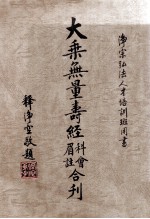 淨宗弘法人才培訓班用書
大乘無量壽經科會眉註合刊
釋淨空敬題